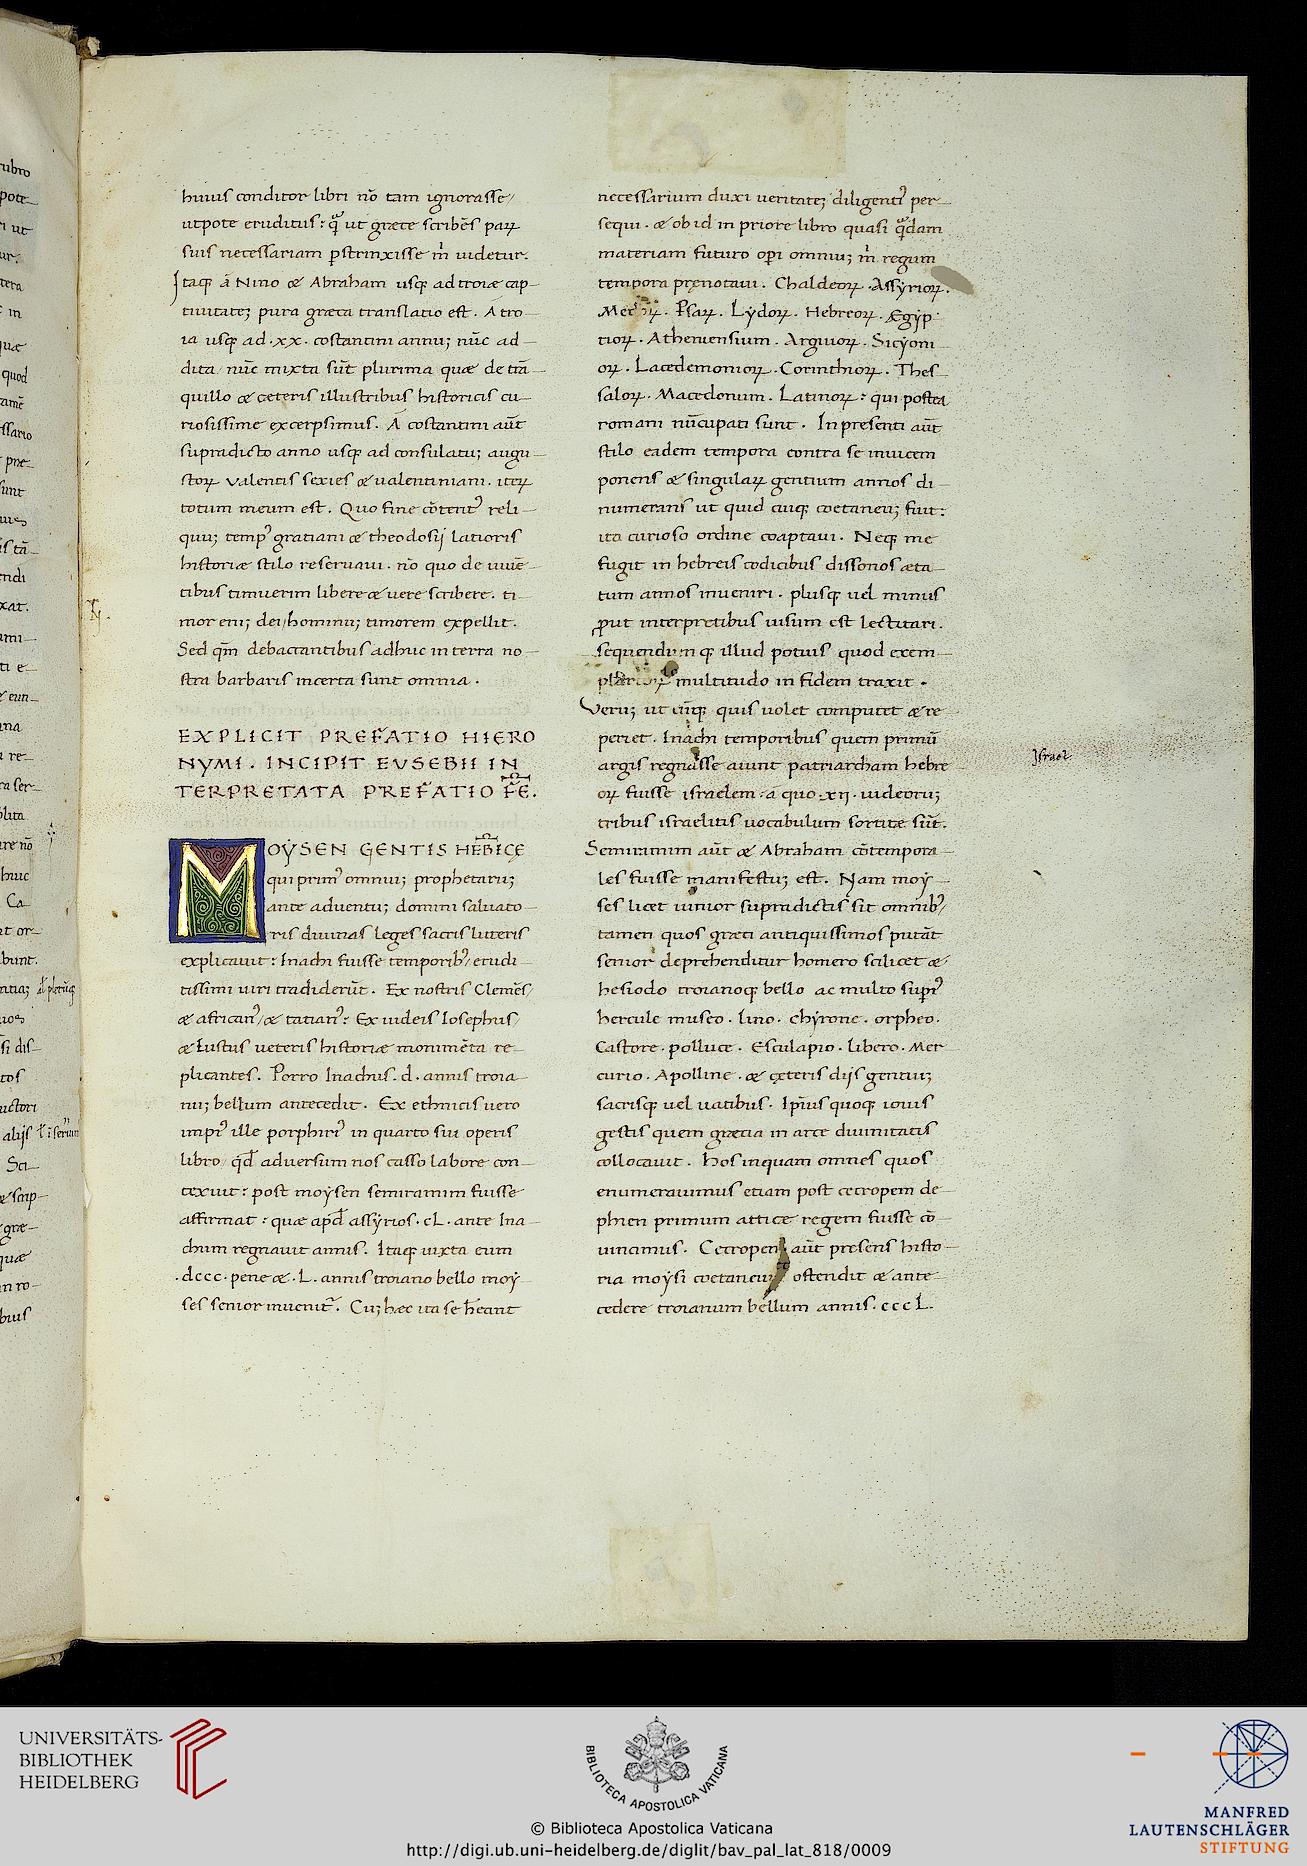 huius conditor libri nō tam ignorasse/
utpote eruditus: q̄ ut græce scribēs paꝝ
suis necessariam pstrinxisse m̄ uidetur.
Itaqꝫ ā Nino & Abraham usqꝫ ad troiæ cap-
tiuitateꝫ pura græca translatio est. A tro-
ia usqꝫ ad .xx. costantini annuꝫ nūc ad-
dita nūc mixta sūt plurima quæ de trā-
quillo & ceteris illustribus historicis cu-
riosissime excerpsimus. A costantini aūt
supradicto anno usqꝫ ad consulatuꝫ augu-
stoꝝ valentis sexies & ualentiniani. iteꝝ
totum meum est. Quo fine cōtent᾿ reli-
quuꝫ temp᾿ gratiani & theodosij latioris
historiæ stilo reseruaui. nō quo de uiuē-
tibus timuerim libere & uere scribere. ti-
mor eniꝫ dei/hominuꝫ timorem expellit.
Sed qm̄ debaccantibus adhuc in terra no-
stra barbaris incerta sunt omnia.
EXPLICIT PREFATIO HIERO
NYMI. INCIPIT EVSEBII IN
TERPRETATA PREFATIO FE̅.
MOYSEN GENTIS HEB̄ICĘ
qui prim᾿ omniuꝫ prophetaruꝫ
ante aduentuꝫ domini saluato-
ris diuinas leges sacris litteris
explicauit: Inachi fuisse temporib᾿/erudi-
tissimi uiri tradiderūt. Ex nostris Clemēs/
& african᾿/& tatian᾿: Ex iudeis Iosephus/
& Iustus ueteris historiæ monimēta re-
plicantes. Porro Inachus .d. annis troia-
nuꝫ bellum antecedit. Ex ethnicis uero
impi᾿ ille porphiri᾿ in quarto sui operis
libro/ qd̄ adversum nos casso labore con-
texuit: post moysen semiramim fuisse
affirmat: quæ apd̄ assyrios .cL. ante Ina-
chum regnauit annis. Itaqꝫ iuxta eum
.dccc. pene & .L. annis troiano bello moy-
ses senior inuenit᾿. Cuꝫ hæc ita se h̄eant
necessarium duxi ueritateꝫ diligenti᾿ per-
sequi. & ob id in priore libro quasi q̄dam
materiam futuro opi omniuꝫ m̄ regum
tempora pręnotaui. Chaldeoꝝ. Assyrioꝝ.
Medoꝝ. Psaꝝ. Lydoꝝ. Hebreoꝝ. Ægyp
tioꝝ. Atheniensium. Arguioꝝ. Sicyoni
oꝝ. Lacedemonioꝝ. Corinthioꝝ. Thes
saloꝝ. Macedonum. Latinoꝝ: qui postea
romani nūcupati sunt. In presenti aūt
stilo eadem tempora contra se inuicem
ponens & singulaꝝ gentium annos di-
numerans ut quid cuiqꝫ coetaneuꝫ fuit:
ita curioso ordine coaptaui. Neqꝫ me
fugit in hebreis codicibus dissonos æta-
tum annos inueniri. plusqꝫ uel minus
ꝓut interpretibus uisum est lectitari.
sequendumqꝫ illud potius quod exem-
plarioꝝ multitudo in fidem traxit.
Veruꝫ ut cūqꝫ quis uolet computet & re-
periet. Inachi temporibus quem primū
argis regnasse aiunt patriarcham hebre-
oꝝ fuisse israelem: a quo .xii. iudeoruꝫ
tribus israelitis uocabulum sortite sūt.
Semiramim aūt & Abraham cōtempora-
les fuisse manifestuꝫ est. Nam moy-
ses licet iunior supradictis sit omnib᾿/
tamen quos græci antiquissimos putāt
senior deprehenditur homero scilicet &
hesiodo troianoqꝫ bello ac multo superi᾿
hercule museo. lino. chyrone. orpheo.
Castore. polluce. Esculapio. libero. Mer-
curio. Apolline. & cęteris dijs gentiuꝫ
sacrisqꝫ uel uatibus. Ipīus quoqꝫ iouis
gestis quem græcia in arce diuinitatis
collocauit. hos inquam omnes quos
enumerauimus etiam post cecropem de-
phien primum atticæ regem fuisse cō-
uincimus. Cecropem aūt presens histo-
ria moysi coetaneum ostendit & ante-
cedere troianum bellum annis. cccL.
Israel
UNIVERSITÄTS-
BIBLIOTHEK
HEIDELBERG
BIBLIOTECA APOSTOLICA VATICANA
© Biblioteca Apostolica Vaticana
http://digi.ub.uni-heidelberg.de/diglit/bav_pal_lat_818/0009
MANFRED
LAUTENSCHLÄGER
STIFTUNG